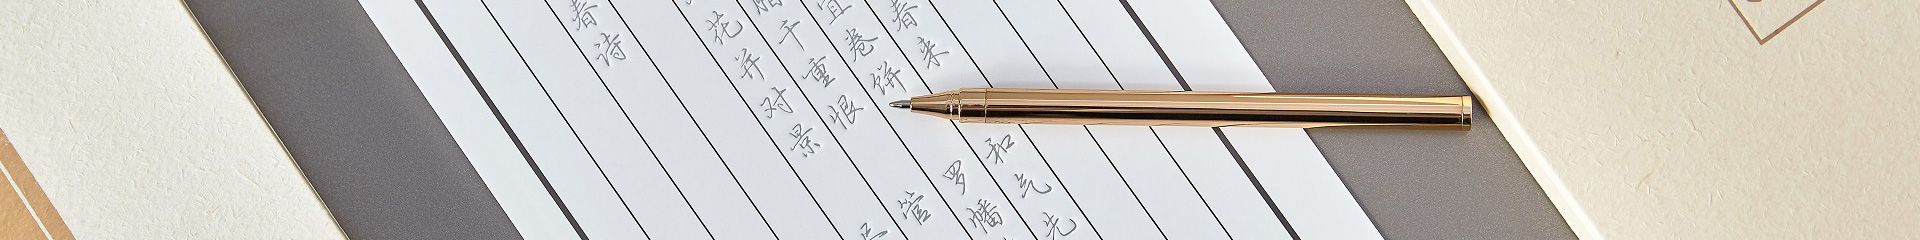 春来和气先
宜卷饼罗幡
腊千重恨管
花并对景
春诗